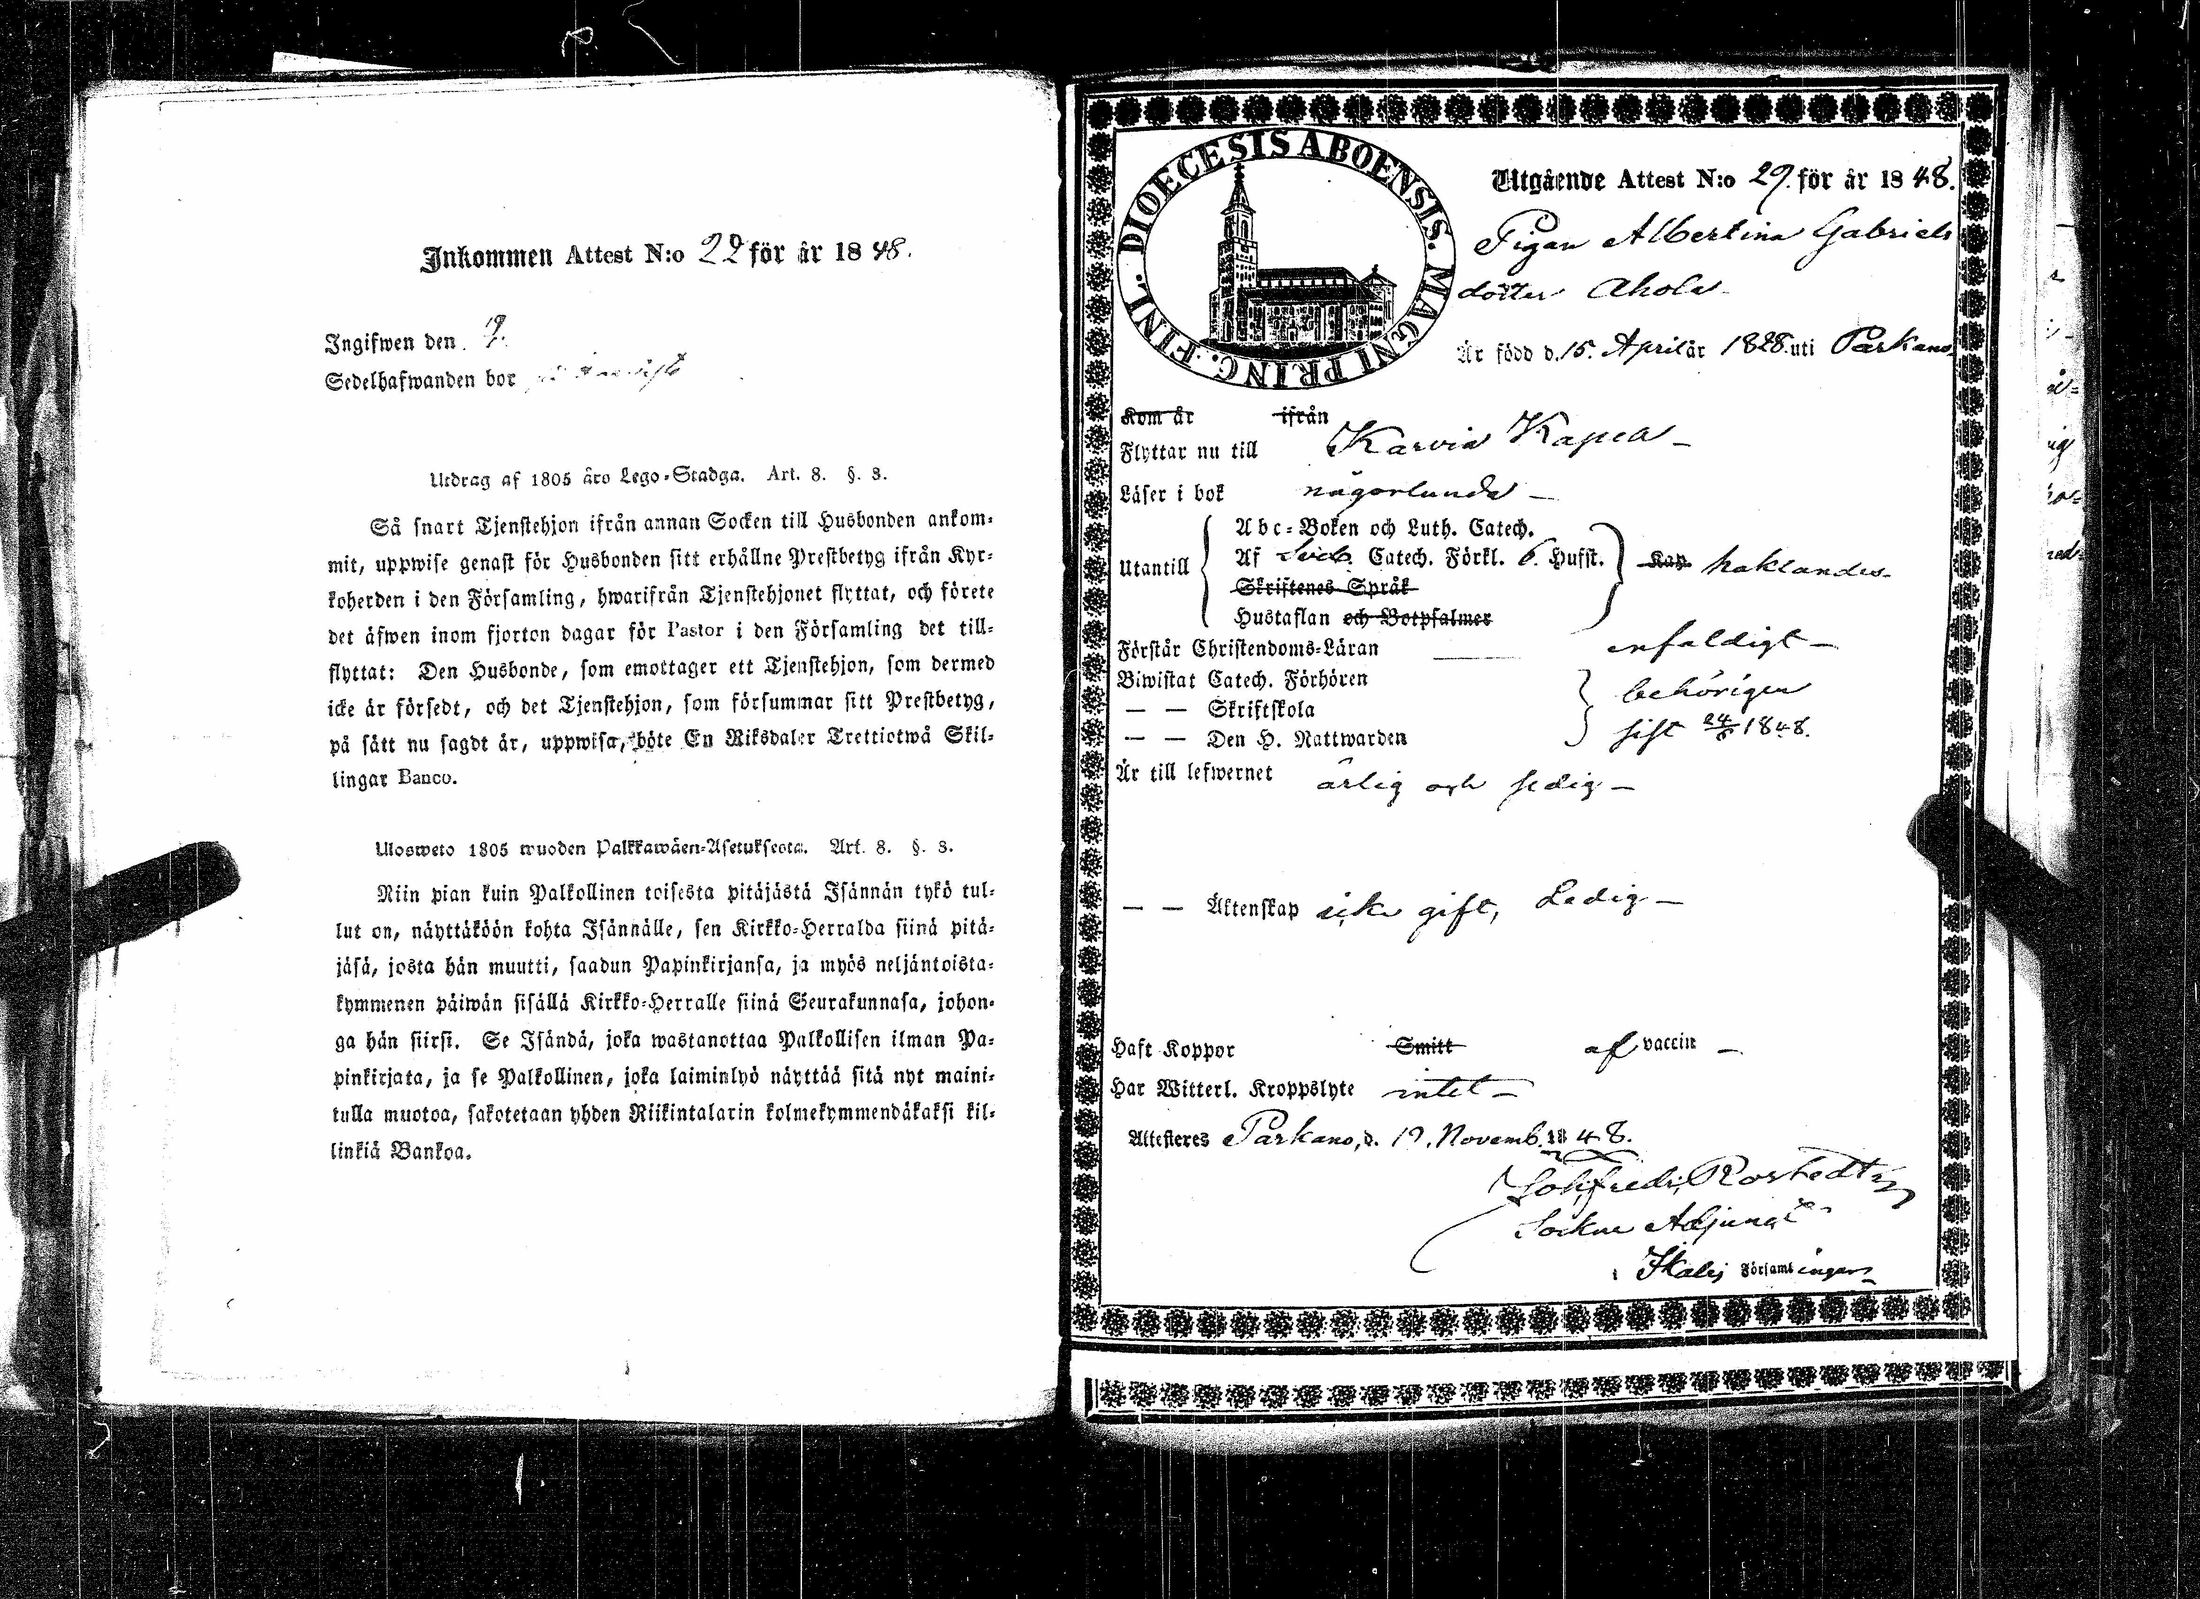 Inkommen Attest N:o 22 för år 1848.
Ingifwen den
Sedelhafwanden bor
Utdrag af 1805 års Lego-Stadga. Art. 8. §. 3.
Så snart Tjenstehjon ifrån annan Socken till Husbonden ankom-
mit, uppwise genast för Husbonden sitt erhållne Prestbetyg ifrån Kyr-
koherden i den Församling, hwarifrån Tjenstehjonet flyttat, och förete
det äfwen inom fjorton dagar för Pastor i den Församling det till-
flyttat: Den Husbonde, som emottager ett Tjenstehjon, som dermed
icke är försedt, och det Tjenstehjon, som försummar sitt Prestbetyg,
på sätt nu sagdt är, uppwisa, böte En Riksdaler Trettiotwå Skil-
lingar Banco.
Ulosweto 1805 wuoden Palkkawäen-Asetuksesta. Art. 8. §. 3.
Niin pian kuin Palkollinen toisesta pitäjästä Isännän tykö tul-
lut on, näyttäköön kohta Isännälle, sen Kirkko-Herralda siinä pitä-
jäsä, josta hän muutti, saadun Papinkirjansa, ja myös neljäntoista-
kymmenen päiwän sisällä Kirkko-Herralle siinä Seurakunnasa, johon-
ga hän siirsi. Se Isändä, joka wastanottaa Palkollisen ilman Pa-
pinkirjata, ja se Palkollinen, joka laiminlyö näyttää sitä nyt maini-
tulla muotoa, sakotetaan yhden Riikintalarin kolmekymmendäkaksi kil-
linkiä Bankoa.
DIOECESIS ABOENSIS. MAGNI PRINC. FINL.
Utgående Attest N:o 29. för år 1848.
Pigan Albertina Gabriels
dotter Ahola
Är född d. 15. April år 1828. uti Parkano
Kom år ifrån
Flyttar nu till Karvia Kapell
Läser i bok någorlunda
Utantill
Abc-Boken och Luth. Catech.
Af Sveb. Catech. Förkl. 6. Hufst.
Skriftenes Språk
Hustaflan och Botpsalmer
Kan haktandes
Förstår Christendoms-Läran enfaldigt
Biwistat Catech. Förhören behörigen
— — Skriftskola
— — Den H. Nattwarden sist 24/6 1848.
Är till lefwernet ärlig och sedig
— — Äktenskap icke gift, Ledig
Haft Koppor Smitt af vaccin
Har Witterl. Kroppslyte intet
Attesteras Parkano, d. 19. Novemb. 1848.
Joh. Fredr. Rostedt
Sockne Adjunct
i Ikalis Församlingar